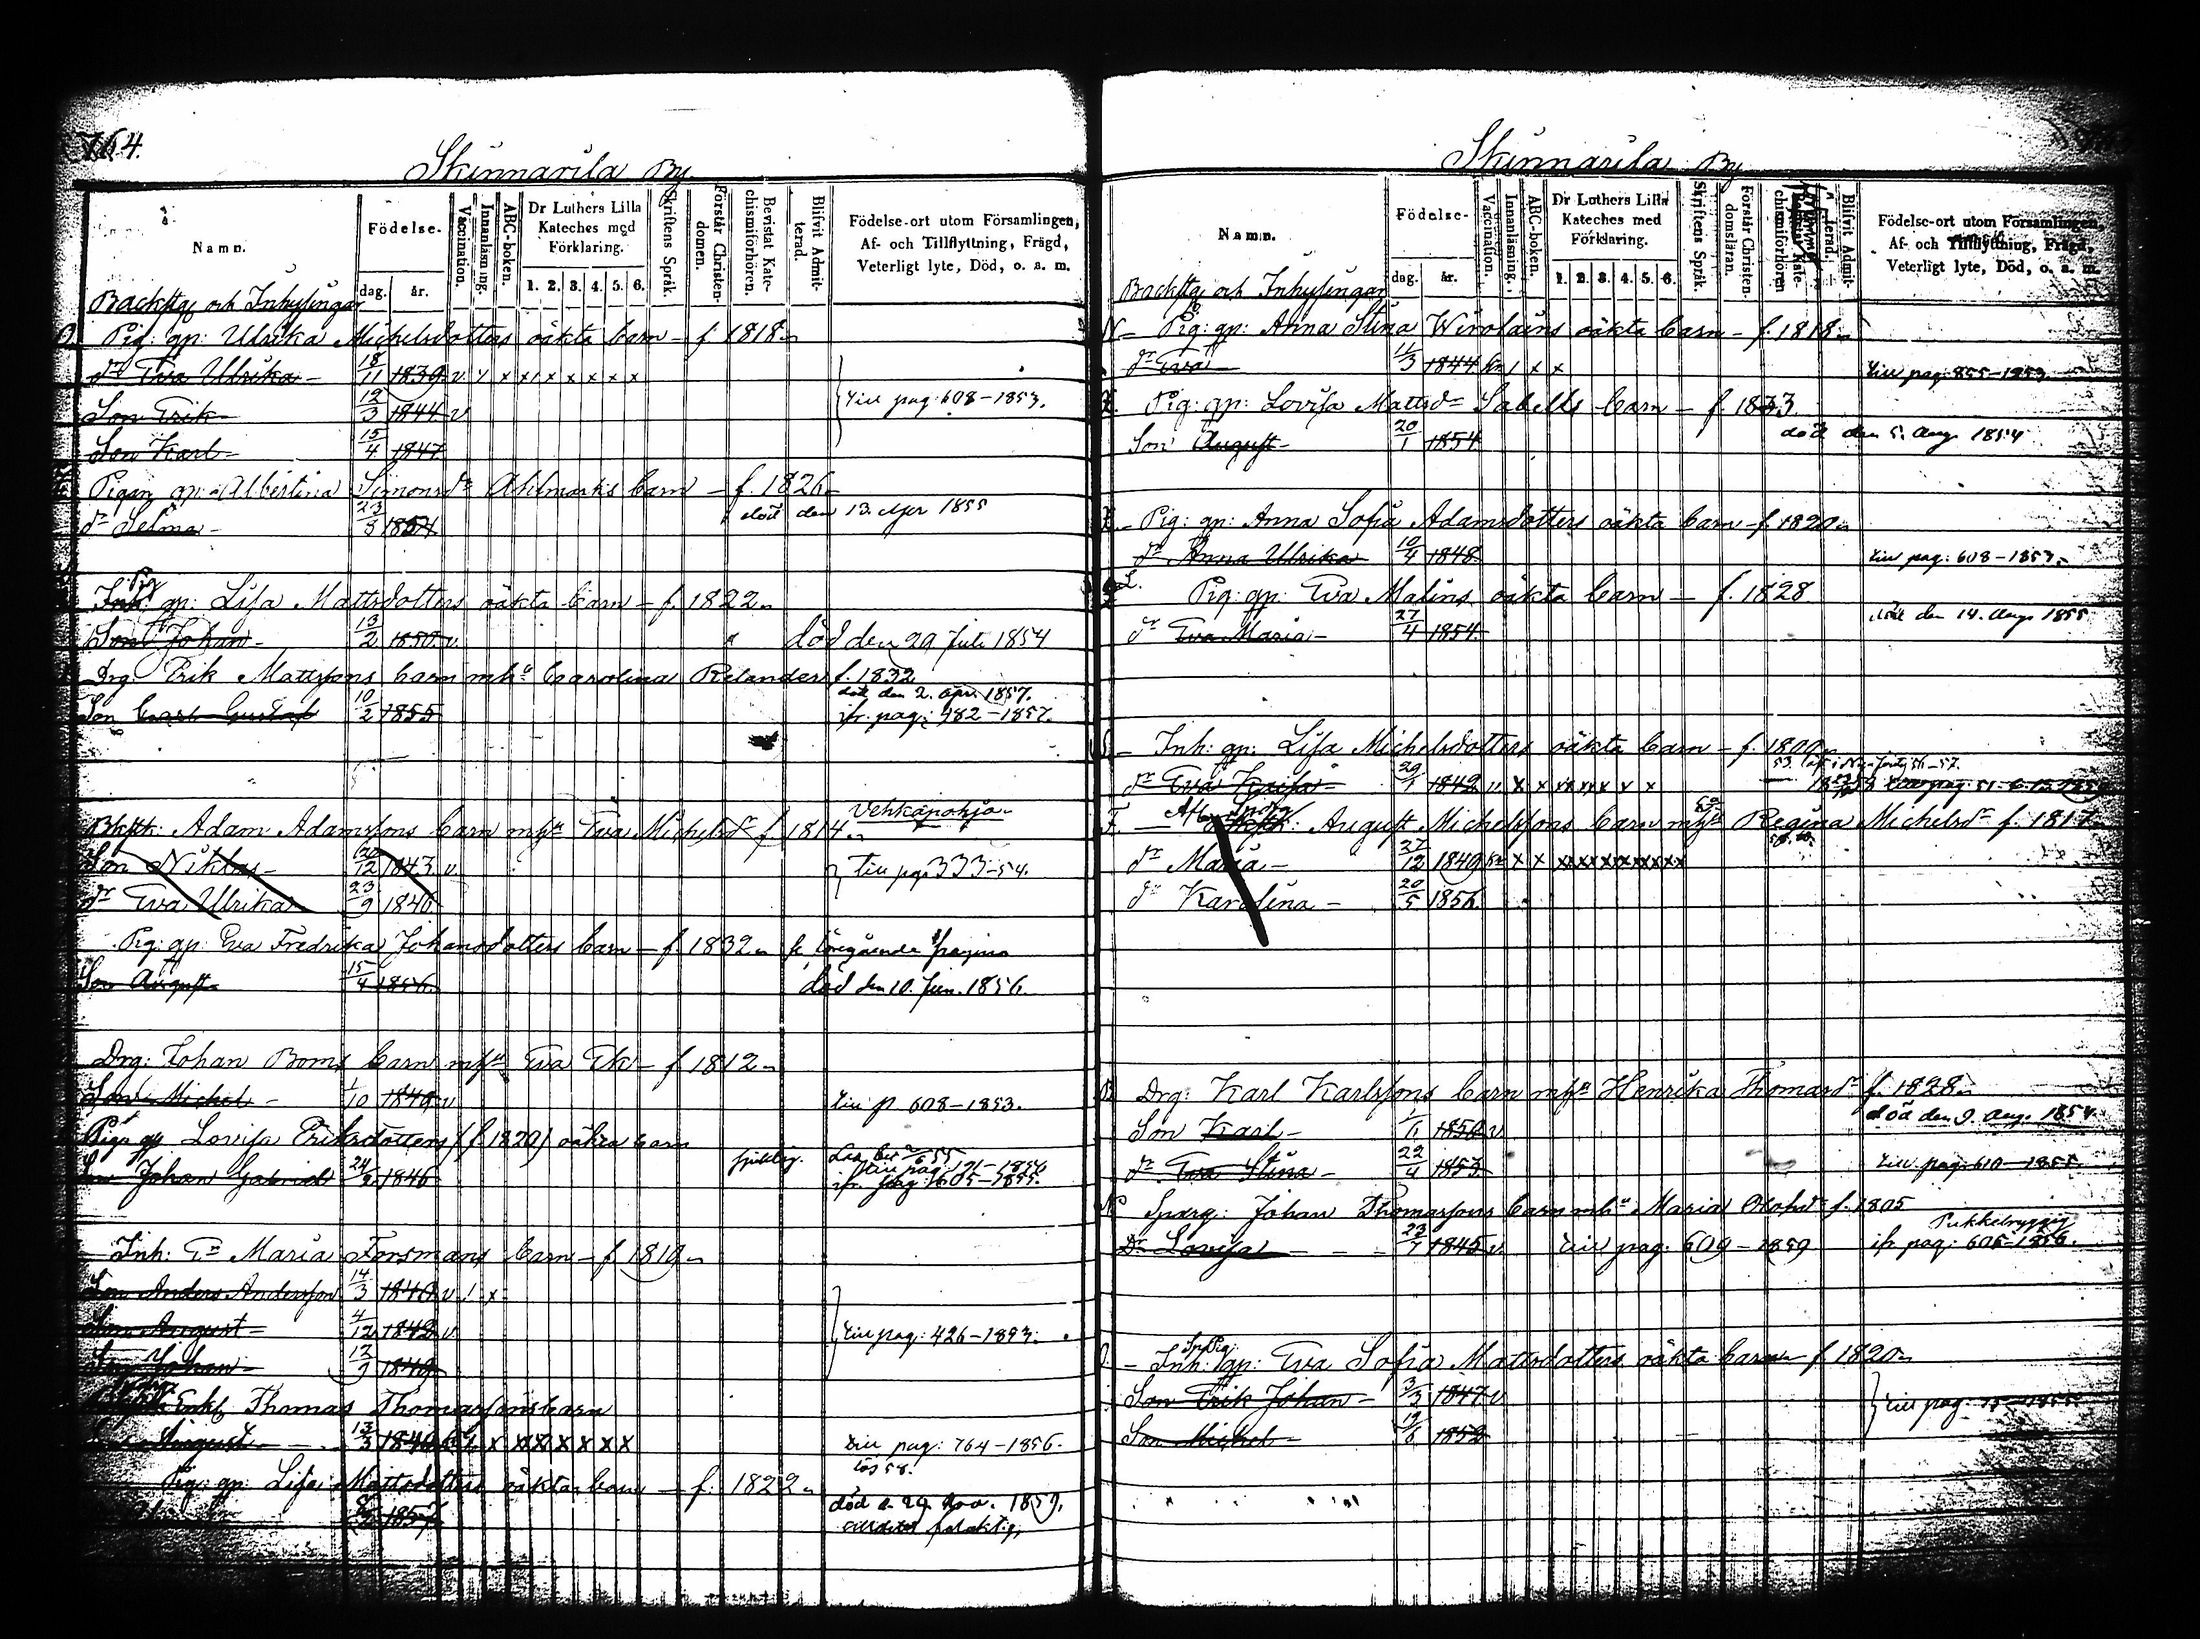 764.
Skinnarila By
Namn.
Födelse-
dag. år.
Vaccination.
Innanläsning.
ABC-boken.
Dr Luthers Lilla Kateches med Förklaring.
1. 2. 3. 4. 5. 6.
Skriftens Språk.
Förstår Christen-domen.
Bevistat Kate-chismiförhören.
Blifvit Admit-terad.
Födelse-ort utom Församlingen,
Af- och Tillflyttning, Frägd,
Veterligt lyte, Död, o. a. m.
Backstg och Inhysingar
Pig: gp: Ulrika Michelsdotters oäkta barn – f 1818
dr Eva Ulrika – 18/11 1839 v x x x x x x x x
Son Erik – 12/3 1844 v till pag: 608–1853.
Son Karl – 15/4 1847
Pigan gp: Albertina Simonsdr Ahlmarks barn – f. 1826
dr Selma – 23/3 1854 död den 13. Apr 1855
Inh: Pig gp: Lisa Mattsdotters oäkta barn – f. 1822
Son Johan – 13/2 1850 v. död den 29 Juli 1854
Drg: Erik Mattssons barn mhu Carolina Relander f. 1832
död den 2. Apr. 1857.
Son Carl Gustaf 10/2 1855 ifr. pag: 482–1857.
Vehkapohja
Adam Adamssons barn mhu Eva Michelsdr f 1814
Son Niklas – 20/12 1843 v. till pag 333–54.
dr Eva Ulrika 23/9 1846
Pig: gp: Eva Fredrika Johansdotters barn – f. 1832 föregående pagina
Son August 15/4 1856 död den 10. Jun. 1856.
Drg: Johan Boms barn mhu Eva Ek – f 1812
Son Michel – 1/10 1849 v till p 608–1853.
Piga gp Lovisa Eriksdotters (f. 1820) oäkta barn
Son Johan Gabriel 24/2 1846 ifr. pag: 605–1855.
Inh: Maria Forsmans barn – f 1819
Son Anders Andersson 14/3 1840 v x
Son August – 4/12 1842 v. till pag: 426–1853.
Son Johan – 12/9 1849
Enkl Thomas Thomassons barn
August 13/3 1846 x x x x x x x till pag: 764–1856.
Pig: gp: Lisa Mattsdotters oäkta barn – f. 1822
1857 död d. 29. Nov. 1859.
Skinnarila By
Namn.
Födelse-
dag. år.
Vaccination.
Innanläsning.
ABC-boken.
Dr Luthers Lilla Kateches med Förklaring.
1. 2. 3. 4. 5. 6.
Skriftens Språk.
Förstår Christen-domsläran.
Bevistat Kate-chismiförhören
Blifvit Admit-terad.
Födelse-ort utom Församlingen,
Af- och Tillflyttning, Frägd,
Veterligt lyte, Död, o. a. m.
Backstg och Inhysingar
N – Pig: gp: Anna Stina Wirolains oäkta barn – f. 1818
dr Eva – 11/3 1844 x x till pag: 855–1853.
Pig: gp: Lovisa Mattsdr Sabells barn – f. 1833.
Son August – 20/1 1854 död den 5. Aug. 1854
Pig: gp: Anna Sofia Adamsdotters oäkta barn – f. 1820
dr Anna Ulrika 10/4 1848 till pag: 608–1853.
Pig: gp: Eva Malins oäkta barn – f. 1828
dr Eva Maria – 27/4 1854 död den 14. Aug 1855
Inh: gp: Lisa Michelsdotters oäkta barn – f. 1800
dr Eva Kaisa – 29/1 1842 v x x x x x x x x
F. – August Michelssons barn mhu Regina Michelsdr f. 181
dr Maria – 27/12 1849 x x x x x x x x
dr Karolina – 20/5 1856
Drg: Karl Karlssons barn mhu Henrika Thomasdr f. 1828
Son Karl – 1/11 1850 v död den 9. Aug. 1854.
dr Eva Stina – 22/4 1853 till pag: 610–1855.
N Johan Thomassons barn mhu Maria Olofsdr f. 1805
Pukkelryggig
Dr Lovisa – 23/7 1845 v. till pag: 609–1859 ifr pag: 605–1856.
– Inh: Pig: gp: Eva Sofia Mattsdotters oäkta barn – f 1820
Son Erik Johan – 3/3 1847 v till pag: 75–1855.
Son Michel – 19/6 1852